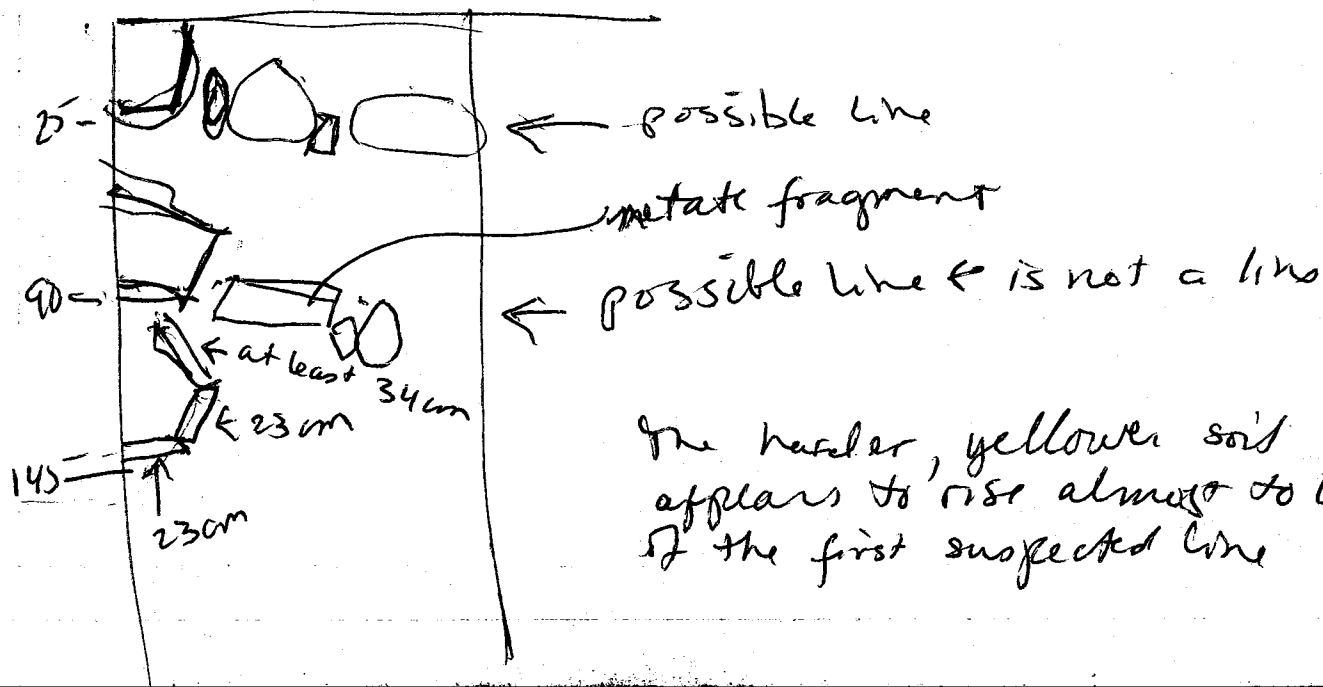 25
possible line
metate fragment
90
possible line ← is not a line
← at least 34cm
← 23cm
145
23cm
The harder, yellower soil
appears to rise almost to
of the first suspected line